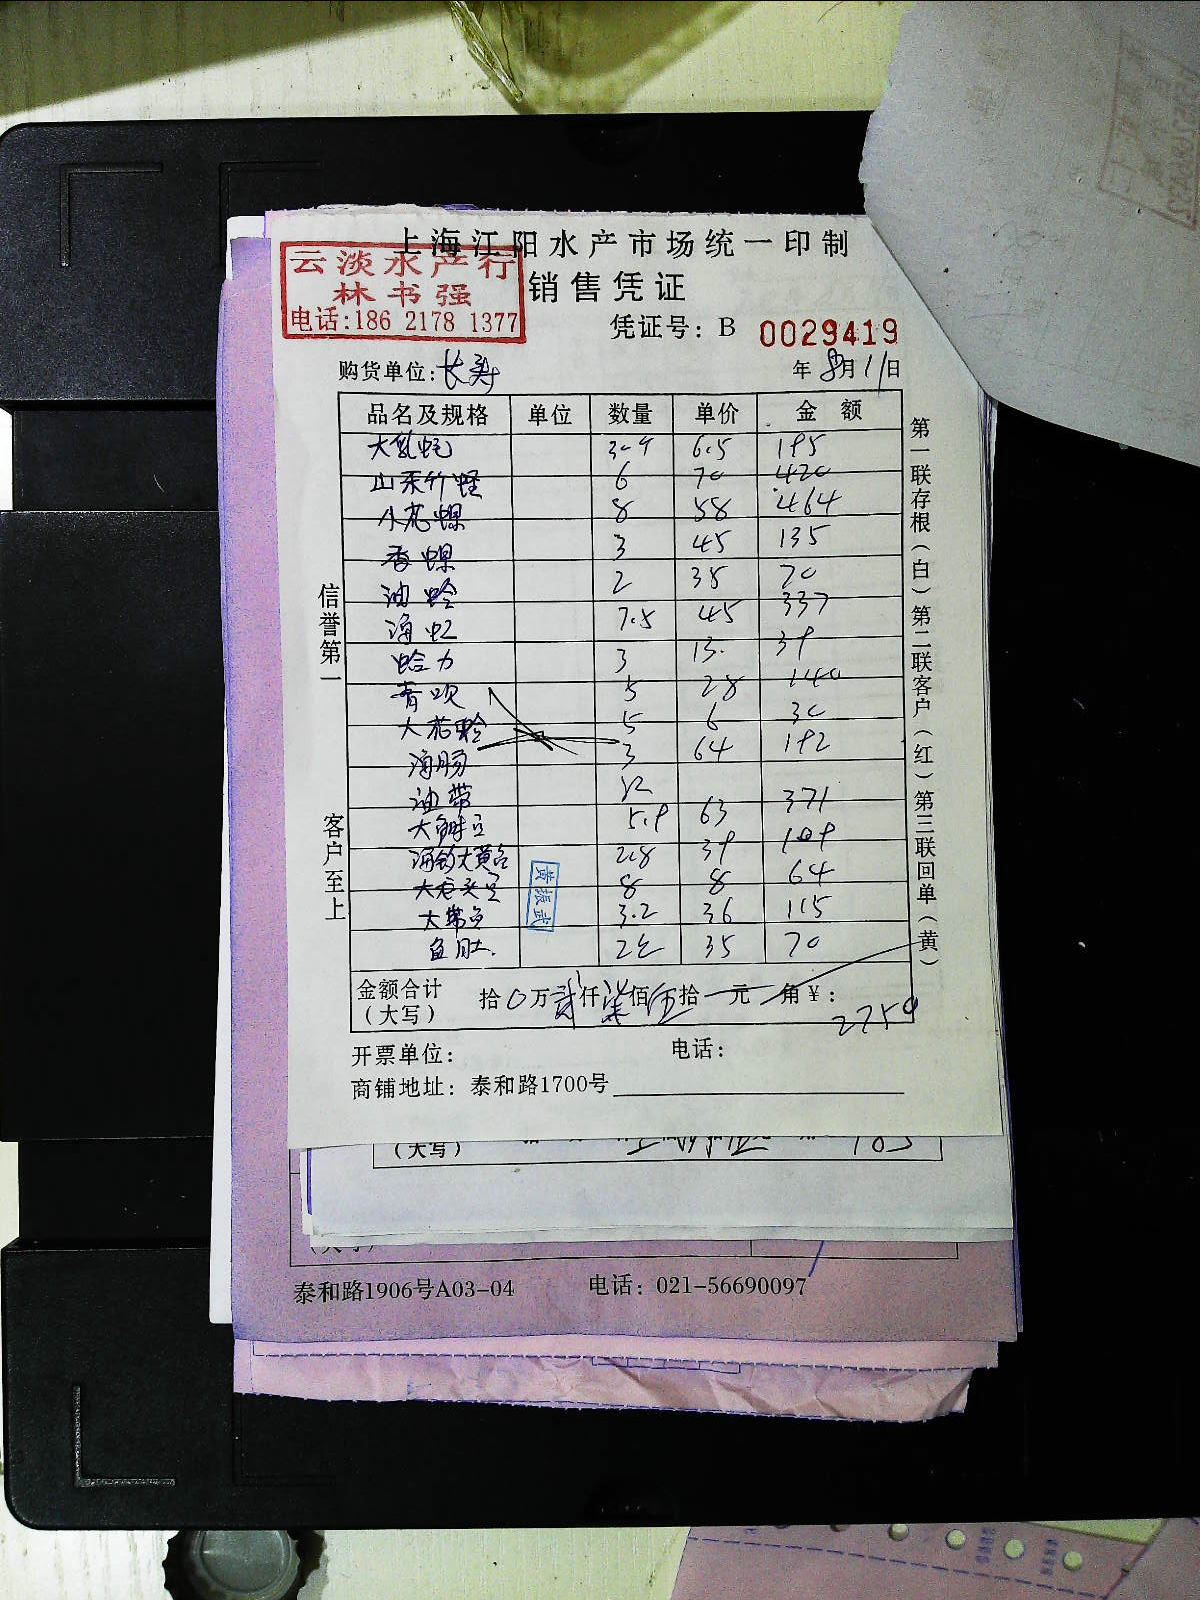 上海江阳水产市场统一印制
云淡水产行
林书强
电话:186 2178 1377
销售凭证
凭证号: B 0029419
购货单位:长寿 年 8月11日
品名及规格 单位 数量 单价 金额
6.5 195
山东竹蛏 6 70 420
小花螺 8 58 464
香螺 3 45 135
油蛤 2 35 70
海虹 7.5 45 337
蛤力 3 13. 39
5 28 140
大花蛤 5 6 30
海肠 3 64 192
油带
5.9 63 371
2.8 39 109
8 8 64
大带鱼 3.2 36 115
鱼肚. 35 70
黄振武
金额合计
(大写)
拾0万贰仟柒佰伍拾一元 角¥:
2759
开票单位: 电话:
商铺地址: 泰和路1700号
信誉第一
客户至上
第一联存根(白)第二联客户(红)第三联回单(黄)
(大写)
泰和路1906号A03-04 电话: 021-56690097